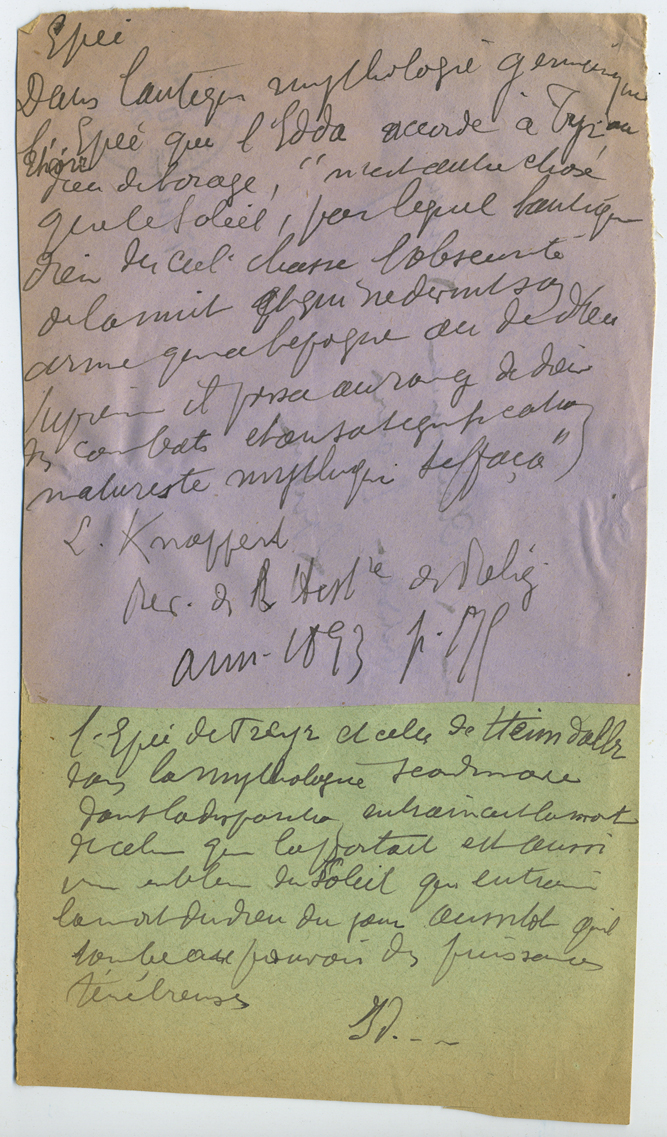 Epée
Dans l'antique mythologie germanique
l'Epée que l'Edda accorde à Tyr, au
dieu de l'orage, "n'est autre chose
que le Soleil, par lequel l'antique
dieu du ciel chasse l'obscurité
de la nuit et qui ne devint son
arme qu'à l'époque où de dieu
Supreme il passa au rang de dieu
des combats et où sa signification
naturiste mythique s'effaça")
L. Knappert
Rev. de l'Hist^re des Relig.
ann. 1893 p.
l'Epée de Freyr et celle de Heimdallr
dans la mythologie Scandinave
dont la disparition entrainait la mort
de celui qui la portait est aussi
un emblem du Soleil qui entraine
la mort du dieu du jour aussitot qu'il
tombe au pouvoir des puissances
ténébreuses
Id. - -